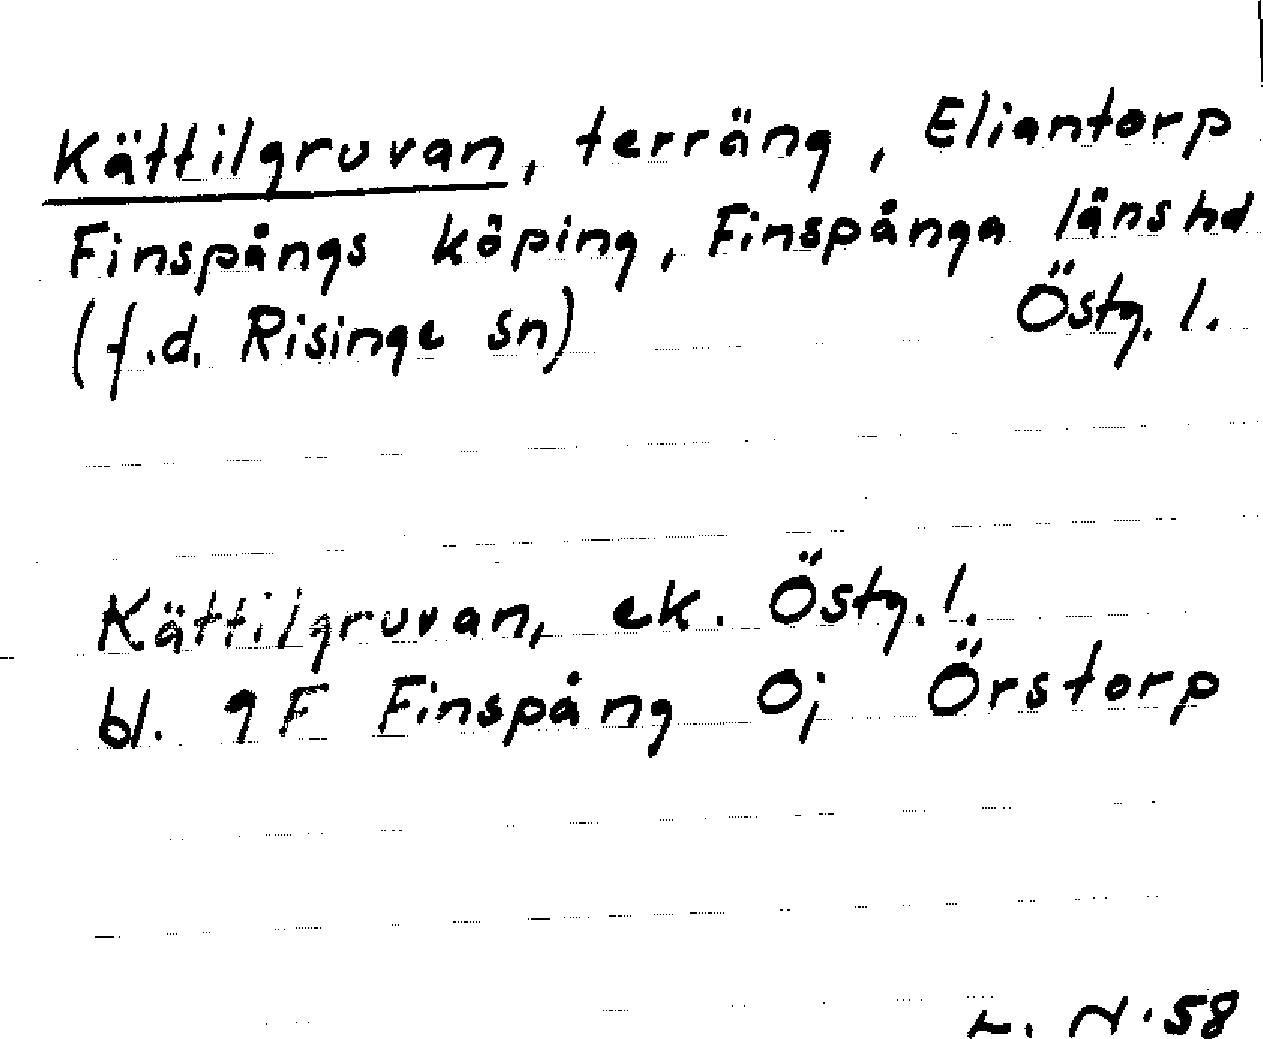 Kättilgruvan, terräng, Eliantorp
Finspångs köping, Finspånga länshd
(f.d. Risinge sn) Östg. l.
Kättilgruvan, ek. Östg. l.
bl. 9F Finspång 0j Örstorp
L. N. 58